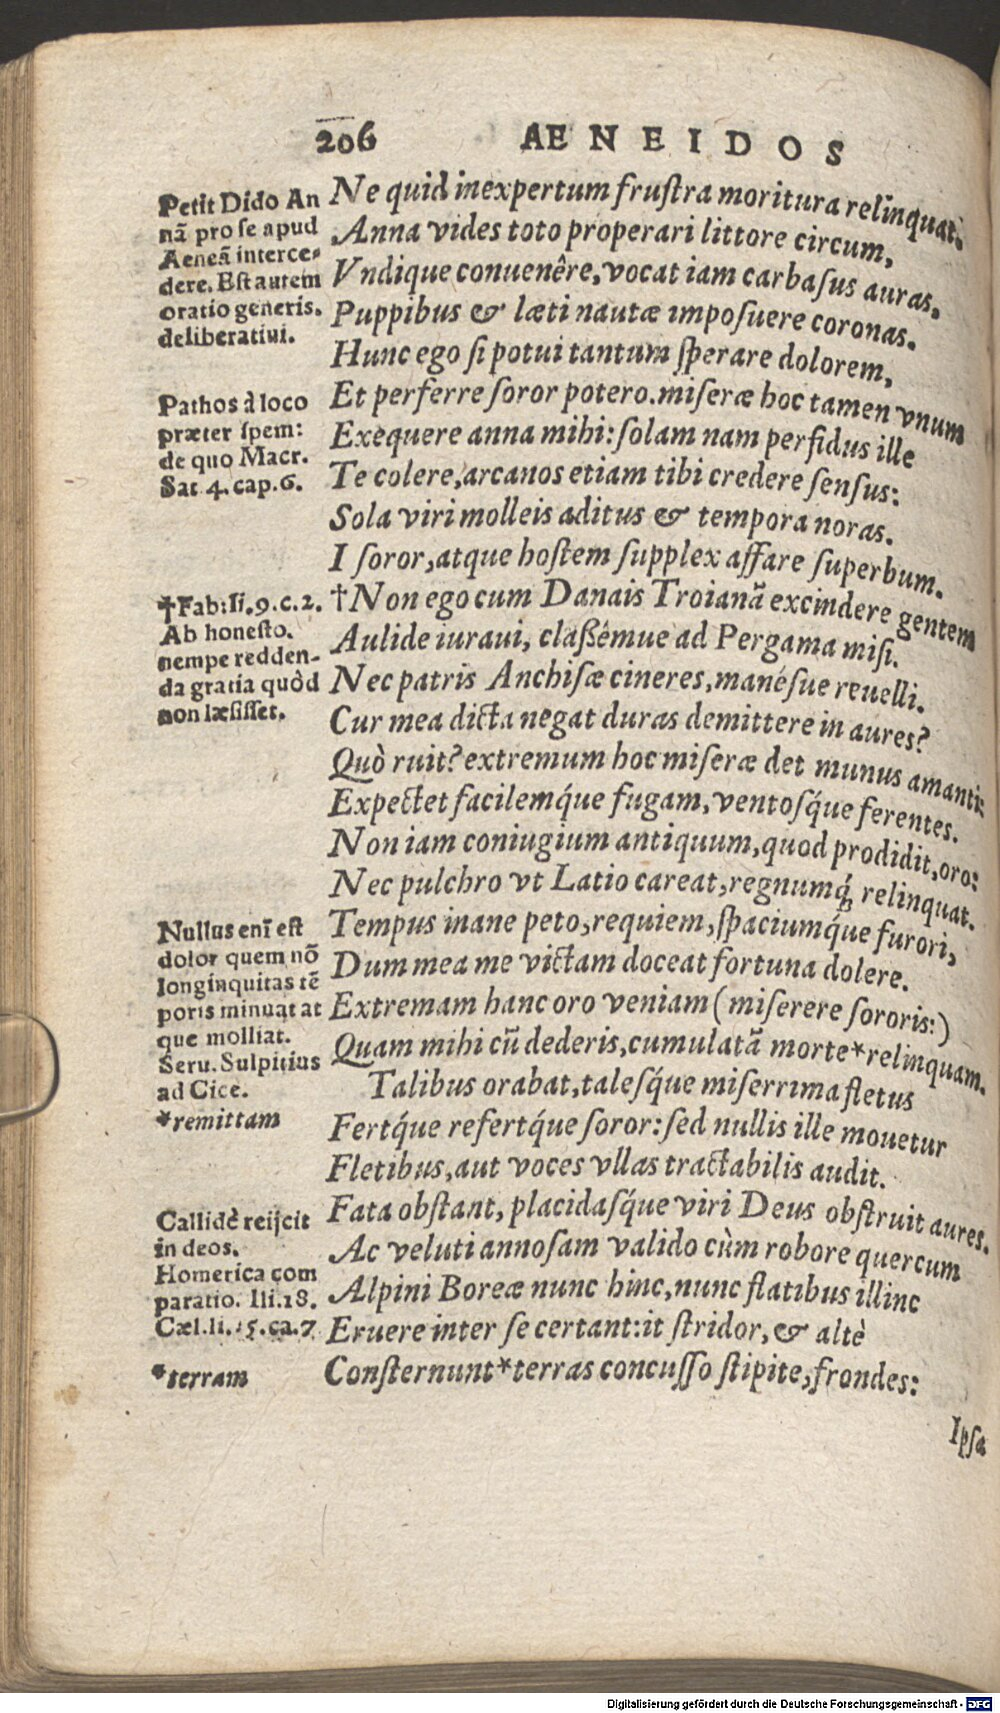 206 AENEIDOS
Petit Dido An
nã pro se apud
Aeneã interce-
dere. Est autem
oratio generis.
deliberatiui.
Pathos à loco
præter spem:
de quo Macr.
Sat 4. cap. 6.
†Fab: li. 9. c. 2.
Ab honesto.
nempe redden-
da gratia quòd
non læsisset.
Nullus enĩ est
dolor quem nõ
longinquitas tẽ
poris minuat at
que molliat.
Seru. Sulpitius
ad Cice.
*remittam
Callidè reijcit
in deos.
Homerica com
paratio. Ili. 18.
Cæl. li. 15. ca. 7
*terram
Ne quid inexpertum frustra moritura relinquat.
Anna vides toto properari littore circum,
Vndique conuenêre, vocat iam carbasus auras,
Puppibus & læti nautæ imposuere coronas.
Hunc ego si potui tantum sperare dolorem,
Et perferre soror potero. miseræ hoc tamen vnum
Exequere anna mihi: solam nam perfidus ille
Te colere, arcanos etiam tibi credere sensus:
Sola viri molleis aditus & tempora noras.
I soror, atque hostem supplex affare superbum.
†Non ego cum Danais Troianã excindere gentem
Aulide iuraui, classémue ad Pergama misi.
Nec patris Anchisæ cineres, manésue reuelli.
Cur mea dicta negat duras demittere in aures?
Quò ruit? extremum hoc miseræ det munus amanti:
Expectet facilemq́ue fugam, ventosq́ue ferentes.
Non iam coniugium antiquum, quod prodidit, oro:
Nec pulchro vt Latio careat, regnumq́; relinquat.
Tempus inane peto, requiem, spaciumq́ue furori,
Dum mea me victam doceat fortuna dolere.
Extremam hanc oro veniam (miserere sororis:)
Quam mihi cũ dederis, cumulatã morte *relinquam.
Talibus orabat, talesq́ue miserrima fletus
Fertq́ue refertq́ue soror: sed nullis ille mouetur
Fletibus, aut voces vllas tractabilis audit.
Fata obstant, placidasq́ue viri Deus obstruit aures.
Ac veluti annosam valido cùm robore quercum
Alpini Boreæ nunc hinc, nunc flatibus illinc
Eruere inter se certant: it stridor, & altè
Consternunt *terras concusso stipite, frondes:
Ipsa
Digitalisierung gefördert durch die Deutsche Forschungsgemeinschaft - DFG